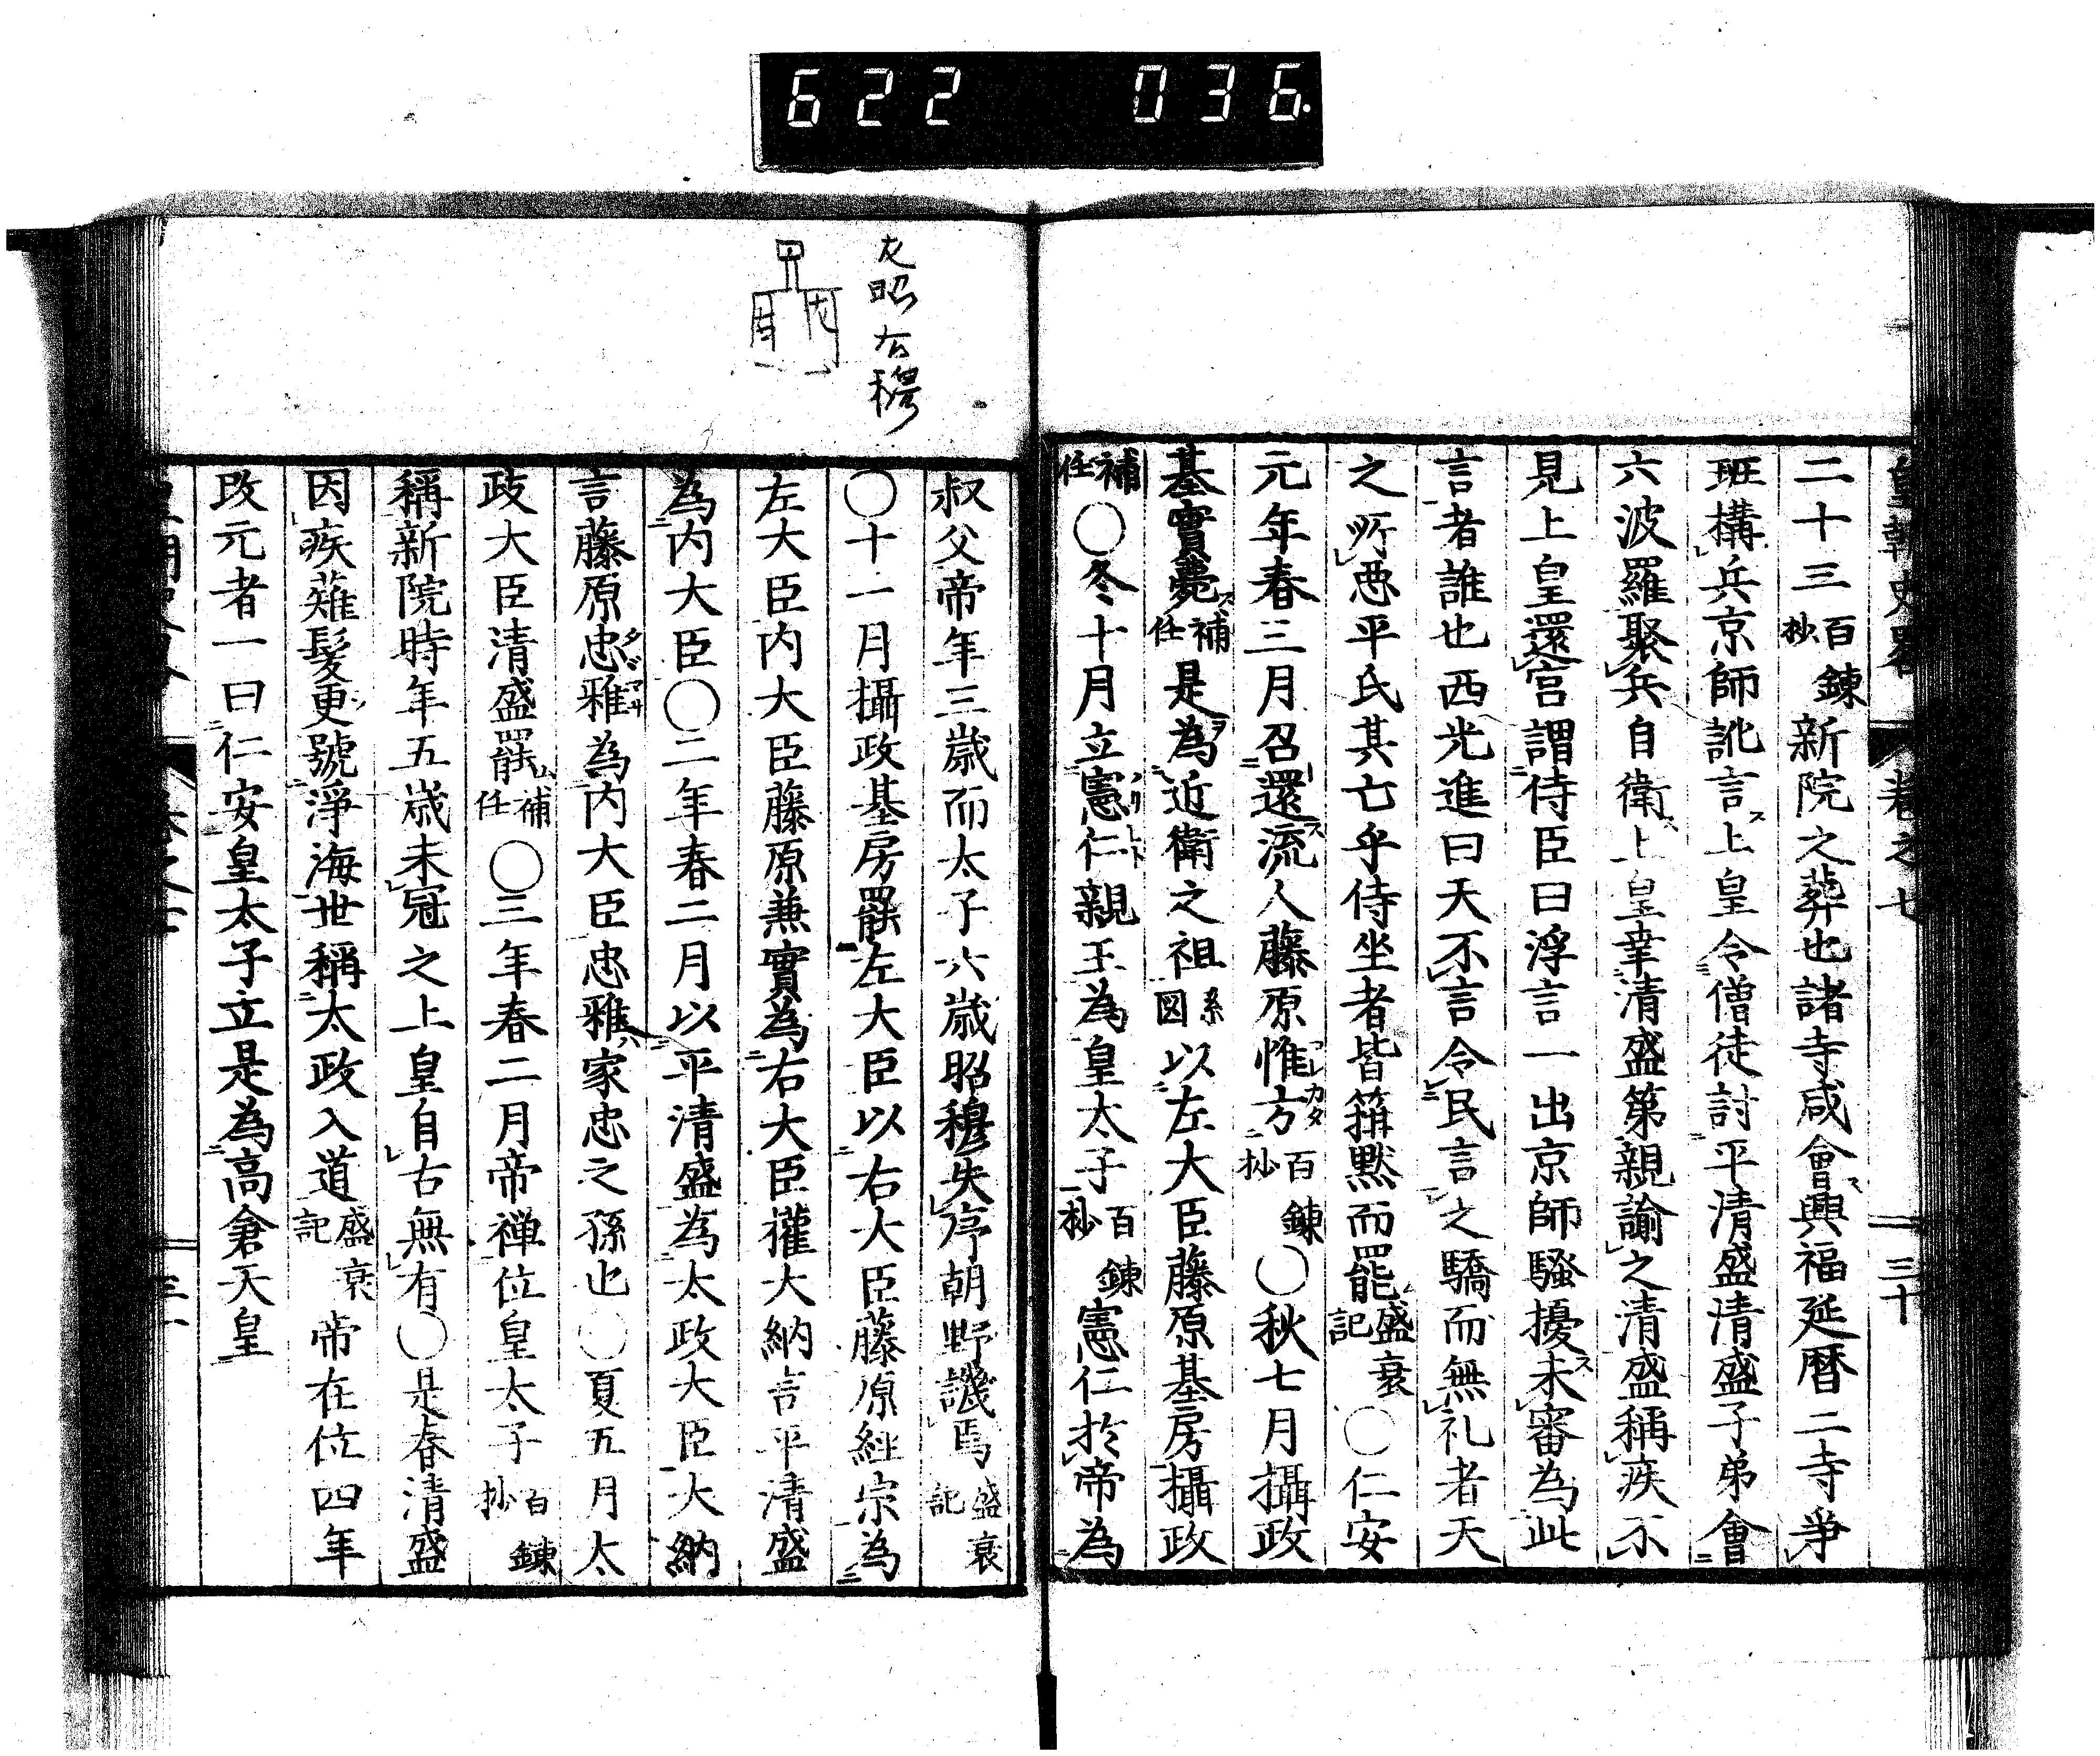 622 036.
皇朝史畧 卷之七 三十
二十三百錬抄新院之葬也諸寺咸會興福延暦二寺爭
班構兵京師訛言上皇令僧徒討平清盛清盛子弟會
六波羅聚兵自衛上皇幸清盛第親諭之清盛稱疾不
見上皇還宮謂侍臣曰浮言一出京師騷擾未審為此
言者誰也西光進曰天不言令民言之驕而無礼者天
之所惡平氏其亡乎侍坐者皆箝黙而罷盛衰記〇仁安
元年春三月召還流人藤原惟方百錬抄〇秋七月攝政
基實薨補任是為近衛之祖系図以左大臣藤原基房攝政
補任〇冬十月立憲仁親王為皇太子百錬抄憲仁於帝為
左昭右穆
叔父帝年三歳而太子六歳昭穆失序朝野譏焉盛衰記
〇十一月攝政基房罷左大臣以右大臣藤原經宗為
左大臣内大臣藤原兼實為右大臣權大納言平清盛
為内大臣〇二年春二月以平清盛為太政大臣大納
言藤原忠雅為内大臣忠雅家忠之孫也〇夏五月太
政大臣清盛罷補任〇三年春二月帝禅位皇太子百錬抄
稱新院時年五歳未冠之上皇自古無有〇是春清盛
因疾薙髮更號淨海世稱太政入道盛衰記帝在位四年
改元者一曰仁安皇太子立是為高倉天皇